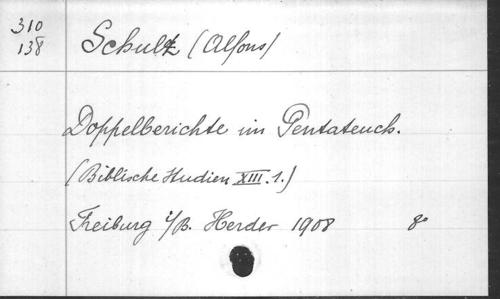 310
138
Schulz (Alfons)
Doppelberichte im Pentateuch.
(Biblische Studien XIII. 1.)
Freiburg i/B. Herder 1908 8°